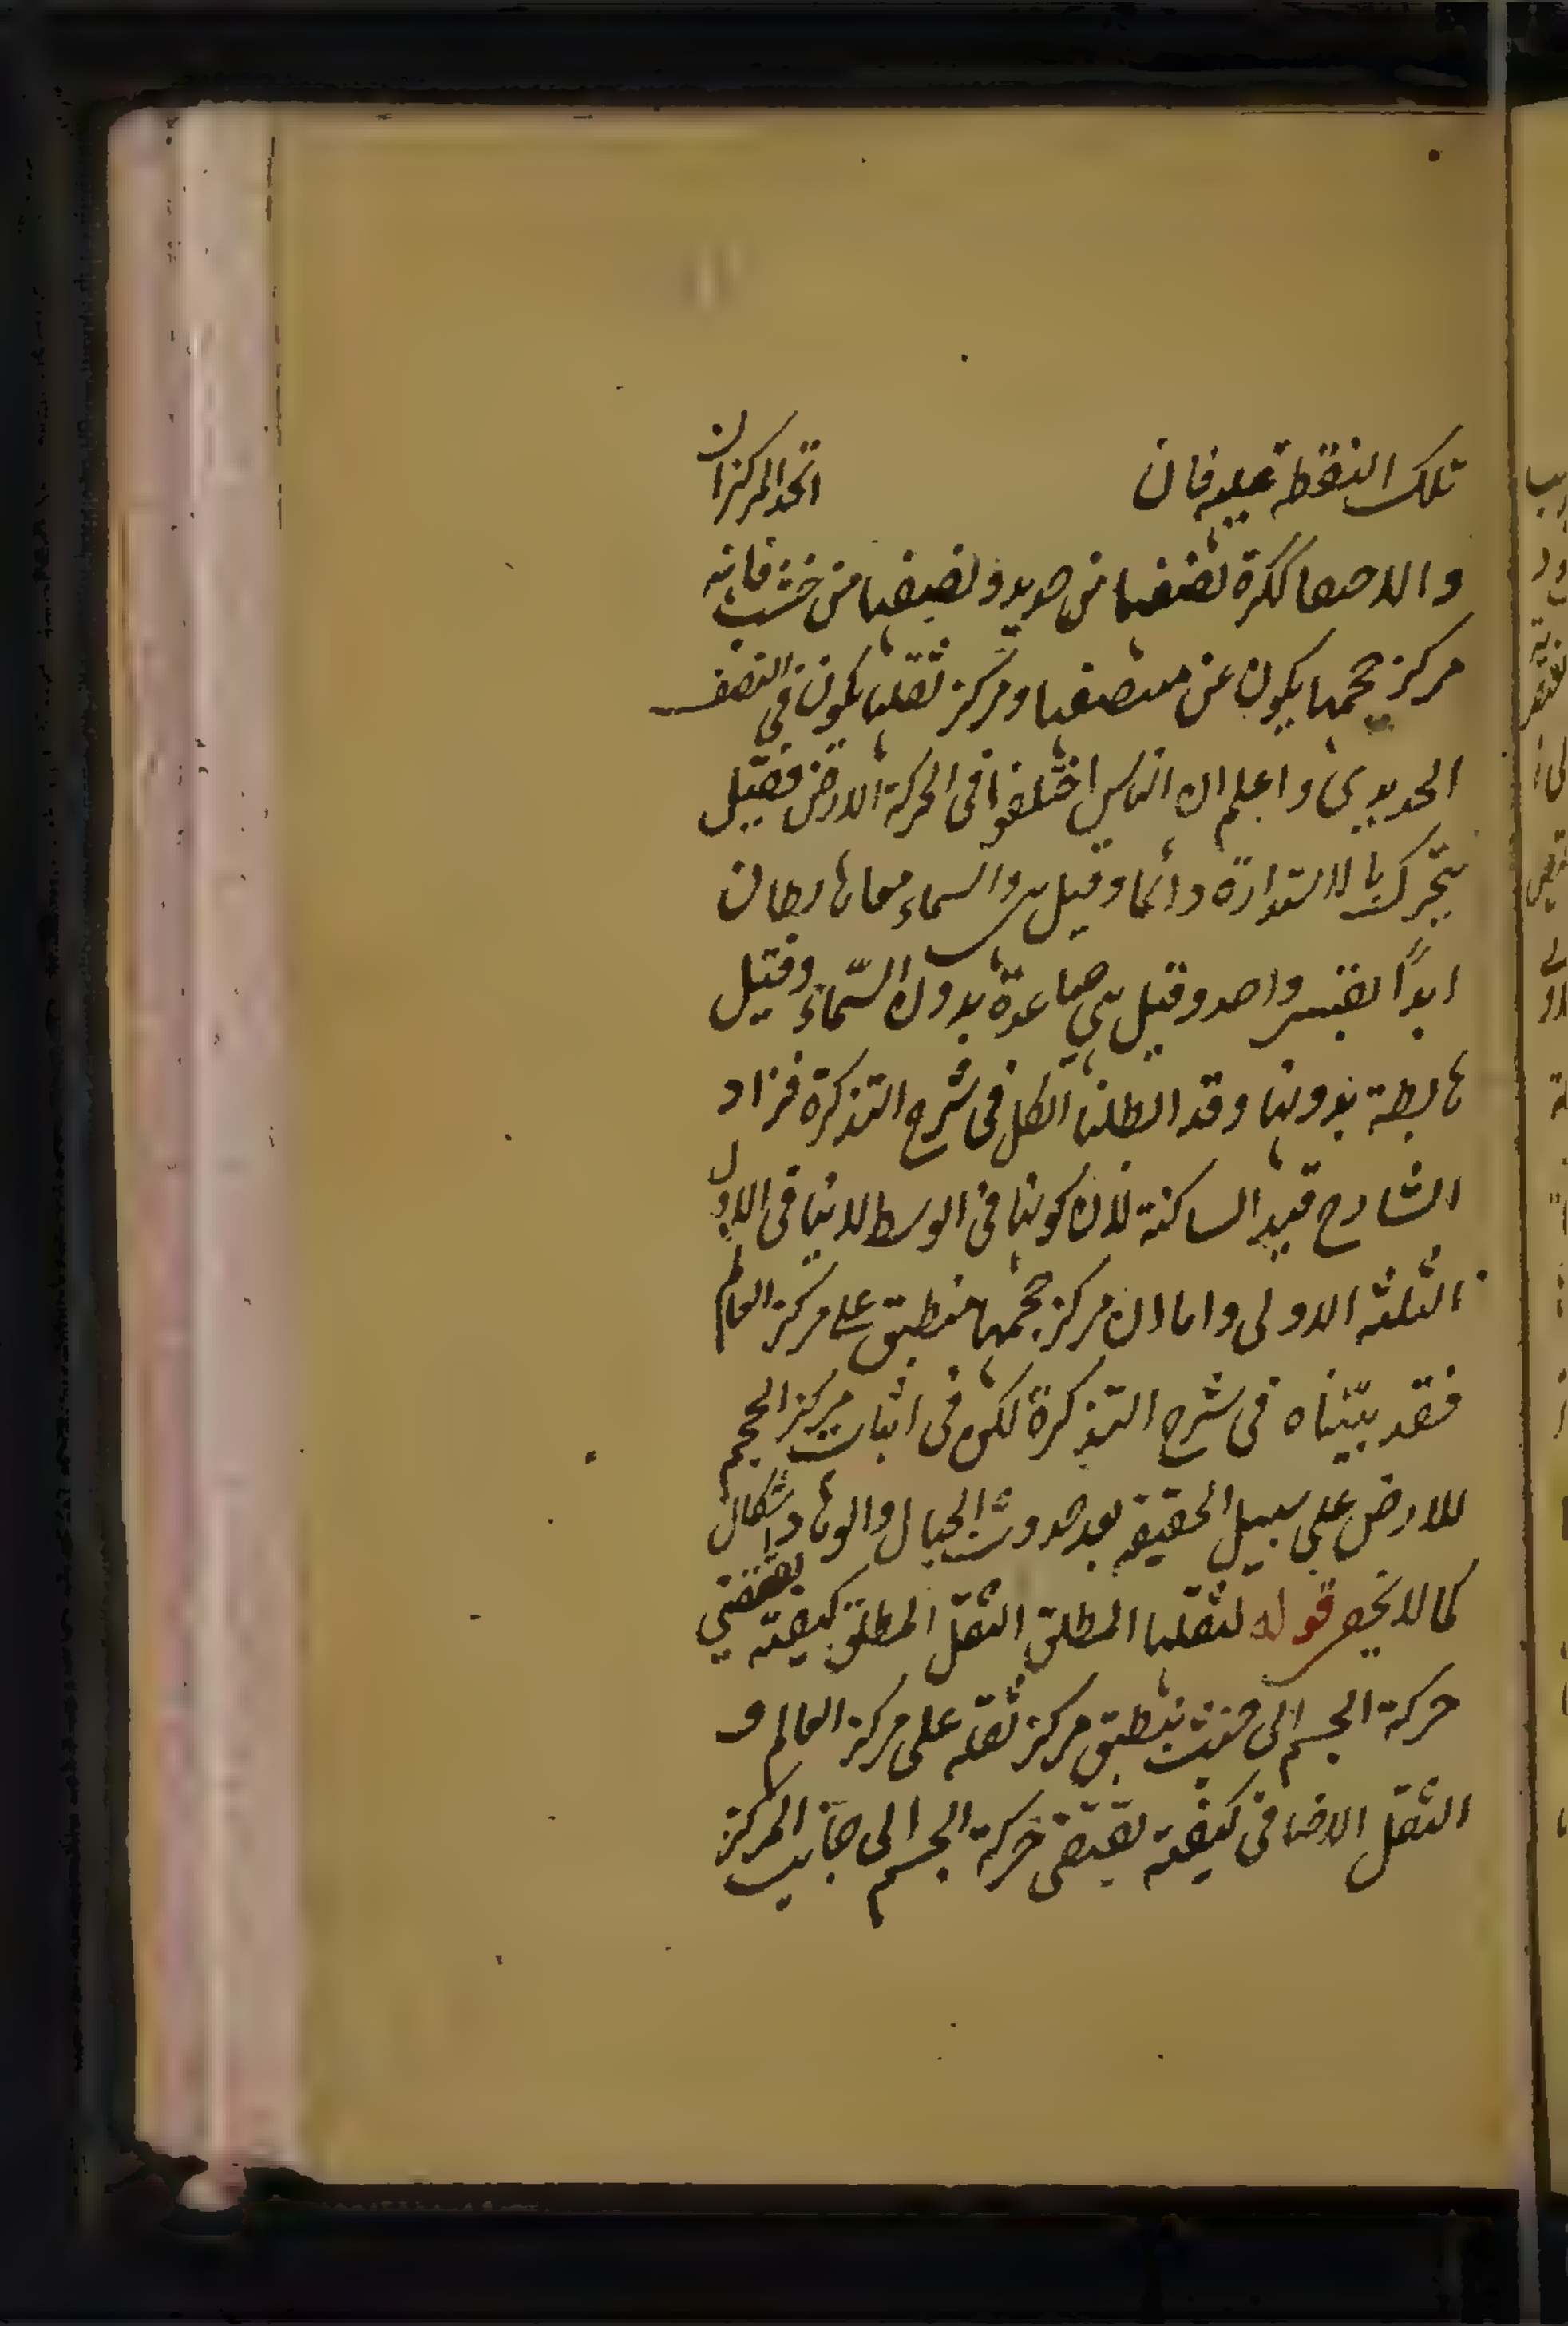 تلك النقطة عليه فان اتحد المركزان
والا صعا ككرة نصفها من حديد ونصفها من خشب فانه
مركز حجمها يكون عن منتصفها ومركز ثقلها يكون في النصف
الحديدي واعلم ان الناس اختلفوا في الحركة الارض فقيل
يتحرك بالاستدارة دائما وقيل هي والسماء معا هابطان
ابدًا بقسر واحد وقيل هي صاعدة بدون السماء وقيل
هابطة بدونها وقد ابطلنا الكل في شرح التذكرة فزاد
الشارح قيد الساكنة لان كونها في الوسط لا ينافي الاول
الثلثة الاولى واما ان مركز حجمها منطبق على مركز العالم
فقد بيّناه في شرح التذكرة لكن في اثبات مركز الحجم
للارض على سبيل الحقيقة بعد حدوث الجبال والوهاد اشكال
كما لا يخفى قوله لثقلها المطلق الثقل المطلق كيفية تقتضي
حركة الجسم الى حيث ينطبق مركز ثقله على مركز العالم و
الثقل الاضافي كيفية تقتضي حركة الجسم الى جانب المركز